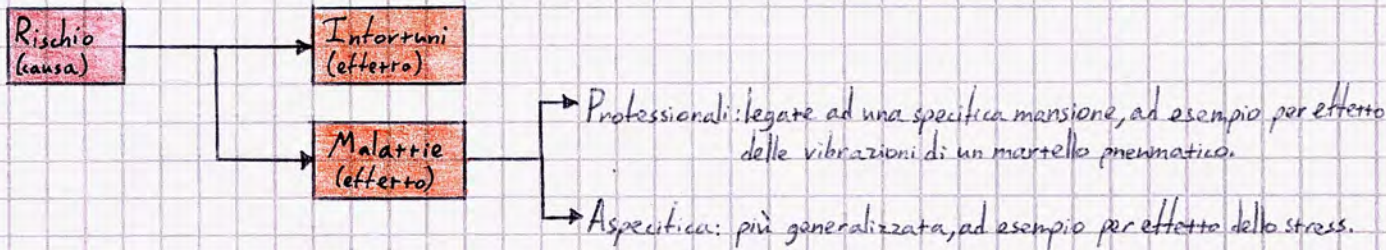 Rischio
(causa)
Infortuni
(effetto)
Malattie
(effetto)
Professionali: legate ad una specifica mansione, ad esempio per effetto
delle vibrazioni di un martello pneumatico.
Aspecifica: più generalizzata, ad esempio per effetto dello stress.